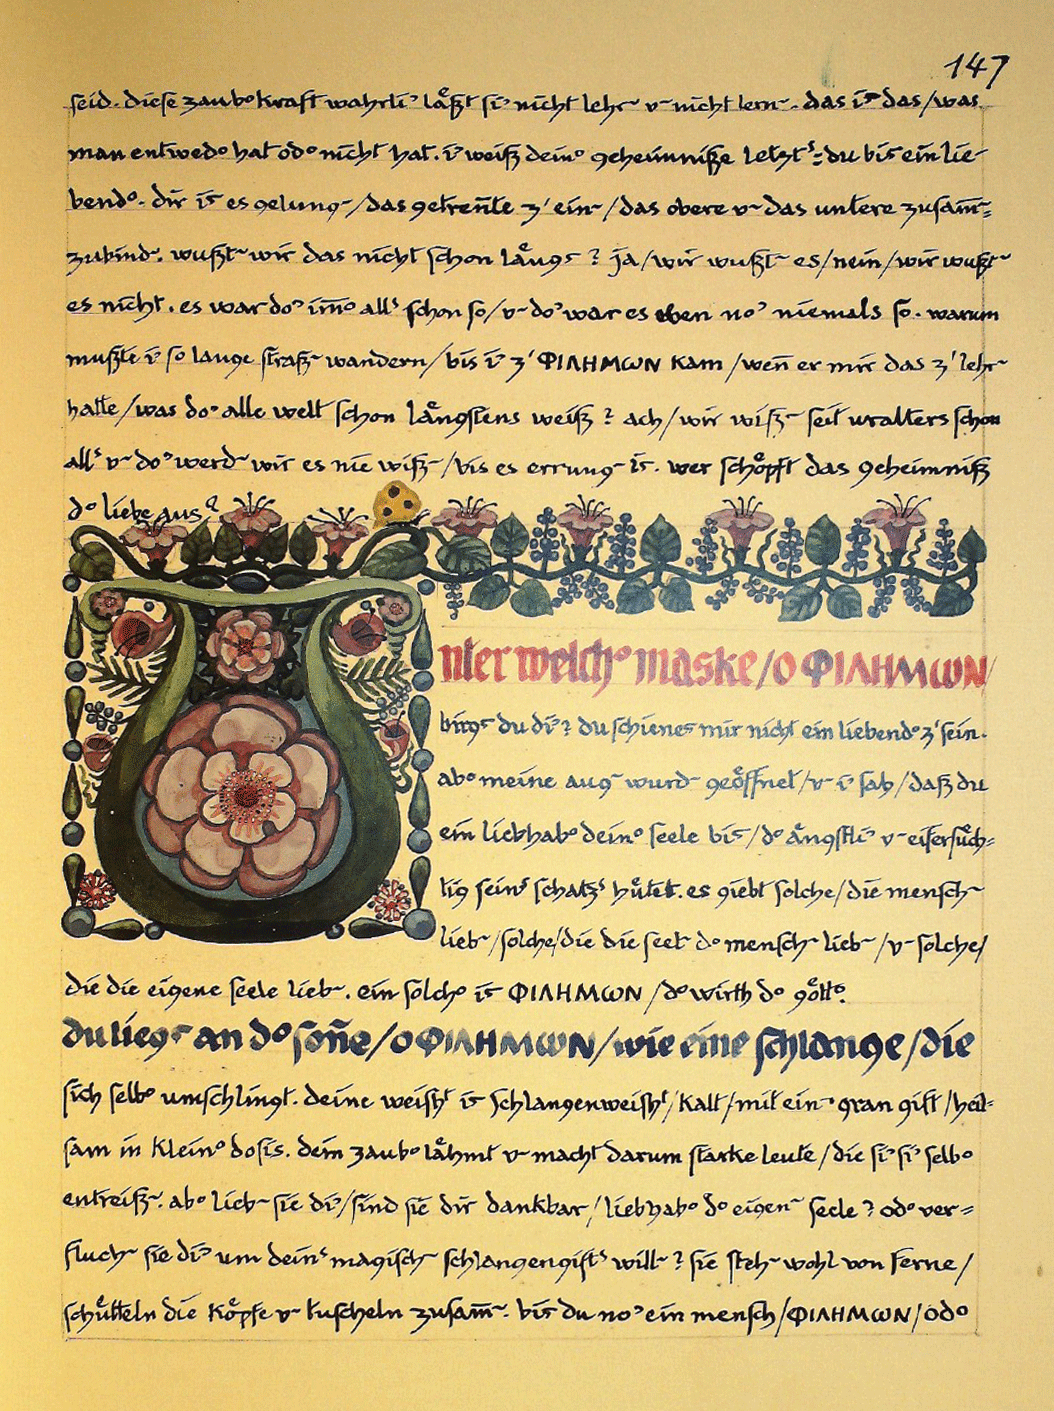 147
seid. diese zaub°kraft wahrli' läßt si' nicht lehr~ v~ nicht lern~. das ist das/was
man entwed° hat od° nicht hat. i' weiß dein° geheimniße letzt^s: du bist ein lie-
bend°. dir ist es gelung~/das getreñte z' ein~/das obere v~ das untere zusam̄=
zubind~. wußt~ wir das nicht schon längst? ja/wir wußt~ es/nein/wir wußt~
es nicht. es war do' im̄° all^s schon so/v~ do' war es eben no' niemals so. warum
mußte i' so lange straß~ wandern/bis i' z' ΦΙΛΗΜΩΝ kam/weñ er mir das z' lehr~
hatte/was do' alle welt schon längstens weiß? ach/wir wiß~ seit uralters schon
all^s v~ do' werd~ wir es nie wiß~/bis es errung~ ist. wer schöpft das geheimniß
d° liebe aus?
Unter welch° maske/O ΦΙΛΗΜΩΝ/
birgst du di'? du schienest mir nicht ein liebend° z' sein.
ab° meine aug~ wurd~ geöffnet/v~ i' sah/daß du
ein liebhab° dein° seele bist/d° ängstli' v~ eifersüch=
tig sein^s schatz^s hütet. es giebt solche/die mensch~
lieb~/solche/die die seel~ d° mensch~ lieb~/v~ solche/
die die eigene seele lieb~. ein solch° ist ΦΙΛΗΜΩΝ/d° wirth d° gött°.
du liegst an d° soñe/O ΦΙΛΗΜΩΝ/wie eine schlange/die
sich selb° umschlingt. deine weish^t ist schlangenweish^t/kalt/mit ein~ gran gift/heil=
sam in klein° dosis. dein zaub° lähmt v~ macht darum starke leute/die si' si' selb°
entreiß~. ab° lieb~ sie di'/sind sie dir dankbar/liebhab° d° eigen~ seele? od° ver=
fluch~ sie di' um dein^s magisch~ schlangengift^s will~? sie steh~ wohl von ferne/
schütteln die köpfe v~ tuscheln zusam̄~. bist du no' ein mensch/ΦΙΛΗΜΩΝ/od°